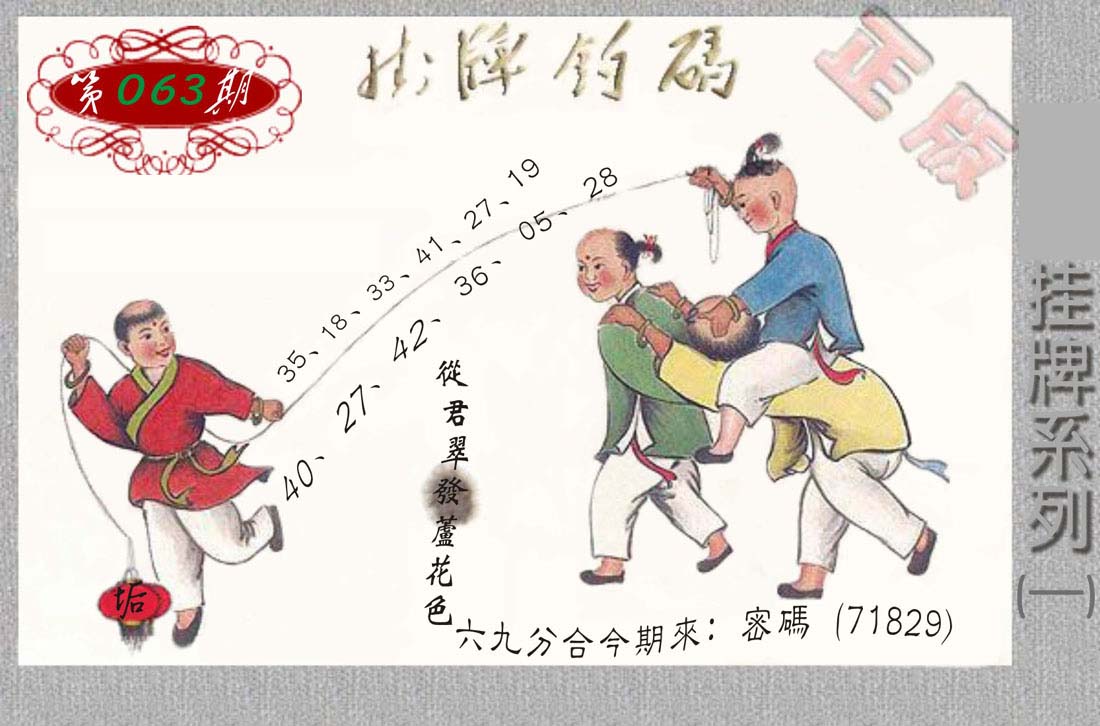 第063期
掛牌釣碼
正版
35、18、33、41、27、19
40、27、42、36、05、28
從君翠發蘆花色
垢
六九分合今期來：密碼（71829）
挂牌系列(一)